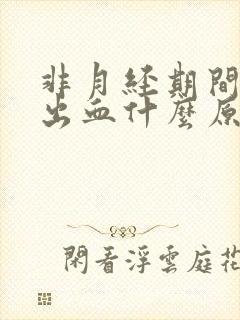 非月经期間
出血什麼原
閑看浮雲庭花